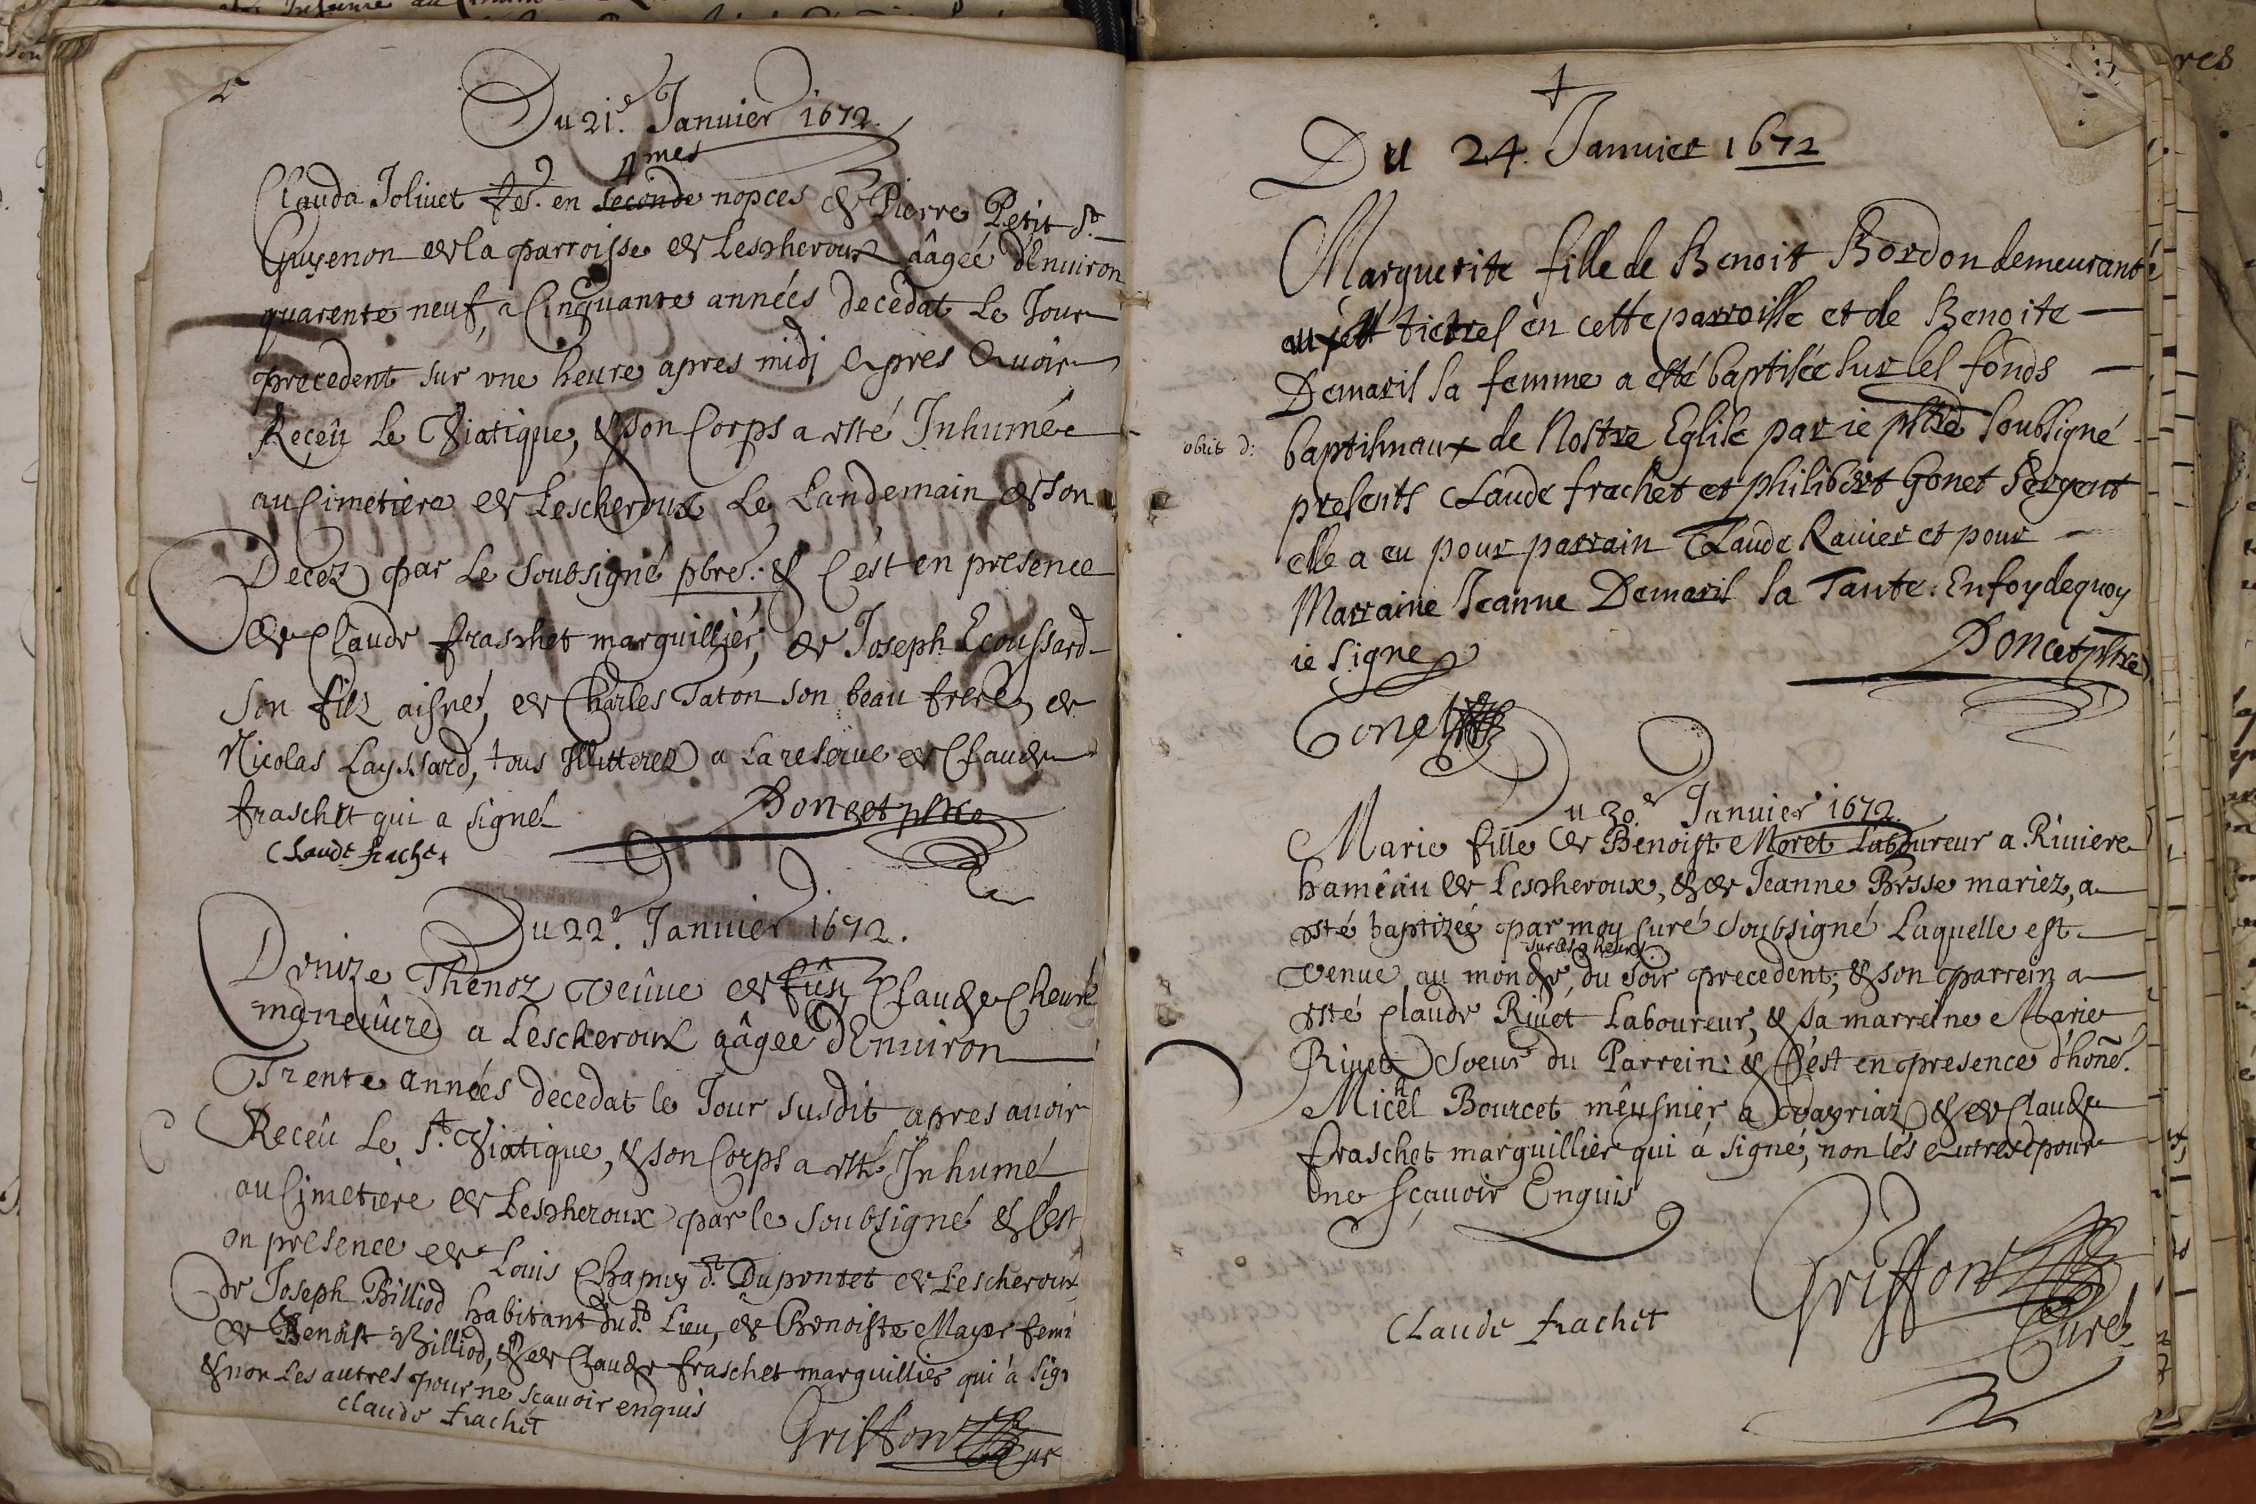 Du 21.e Januier 1672.
4mes
Clauda Joliuet fe. en seconde nopces de Pierre Petit dt.
Guyenon de la parroisse de Lescheroux aâgeé d'Enuiron
quarente neuf, a Cinquante années decedat Le Jour
precedent sur vne heure apres midj apres auoir
Reçeû Le Viatique, & son Corps a esté Inhumée
au Cimetiere de Lescheroux Le Landemain de son
Decez par Le soubsigné pbre. & C'est en presence
de Claude fraschet marguillier, de Joseph Ecoussard
son filz aisné, de Charles Taton son beau frere, de
Nicolas Layssard, tous Illitterez a La reserue de Claude
fraschet qui a signé
Doncet pbtre
Claude frachet
Du 22e. Januier 1672.
Denize Thenoz veûue de fûst Claude Cheuré
maneûure a Lescheroux aâgeé d'Enuiron
Trente années decedat le Jour susdit apres auoir
Receû Le St. Viatique, & son Corps a esté Inhumé
au Cimetiere de Lescheroux par le soubsigné & C'est
en presence de Louis Chapuy dt. Dupontet de Lescheroux
de Joseph Billiod habitant dudt. Lieu, de Benoiste Mayer fem
de Benoist Billiod, & de Claude fraschet marguillier qui à sig
& non Les autres pour ne scauoir enquis
claude frachet
Griffon Cur
Du 24. Januier 1672
Marguerite fille de Benoit Bordon demeurante
en cette parroisse et de Benoite
Demaris sa femme a esté baptisée sur les fonds
obiit d:
baptismaux de Nostre Eglise par ie pbtre soubsigné
presents Claude frachet et philibert Gonet sergent
elle a eu pour parrain Claude Rauier et pour
Marraine Jeanne Demaris sa Tante. En foy de quoy
ie signe
Doncet pbtre
Gonet
Du 30.e Januier 1672.
Marie fille de Benoist Moret Laboureur a Riuiere
hameâu de Lescheroux, & de Jeanne Besse mariez, a
esté baptizeé par moy Curé soubsigné Laquelle est
sur les 9 heures
venue au monde, du soir precedent; & son parrein a
esté Claude Riuet Laboureur, & sa marreine Marie
Riuet Soeur du Parrein: & C'est en presence d'hone.
Michel Bourcet mêusnier a vayriaz & de Claude
fraschet marguillier qui à signé, non les autres pour
ne sçauoir Enquis
Griffon
Curé
Claude frachet